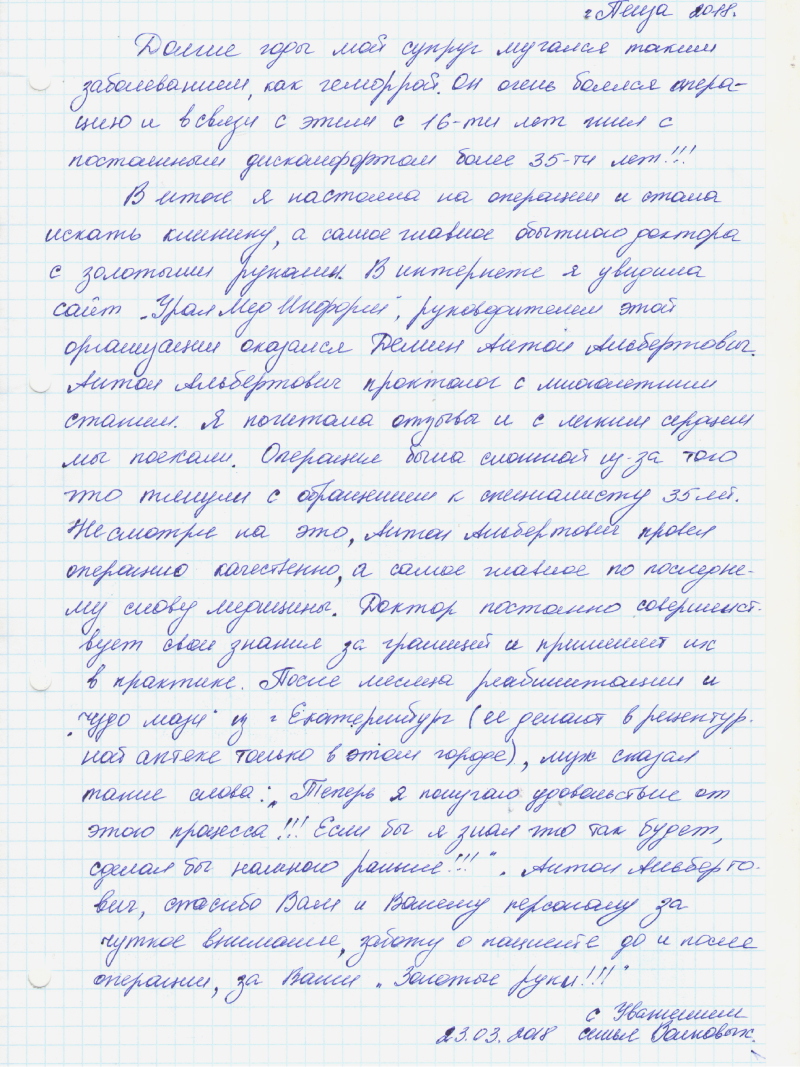 г. Пенза 2018.
Долгие годы мой супруг мучался таким
заболеванием, как геморрой. Он очень боялся опера-
цию и в связи с этим с 16-ти лет жил с
постоянным дискомфортом более 35-ти лет!!!
В итоге я настояла на операции и стала
искать клинику, а самое главное опытного доктора
с золотыми руками. В интернете я увидела
сайт "УралМедИнформ", руководителем этой
организации оказался Демин Антон Альбертович.
Антон Альбертович проктолог с многолетним
стажем. Я почитала отзывы и с легким сердцем
мы поехали. Операция была сложной из-за того
что тянули с обращением к специалисту 35 лет.
Не смотря на это, Антон Альбертович провел
операцию качественно, а самое главное по последне-
му слову медицины. Доктор постоянно совершенст-
вует свои знания за границей и применяет их
в практике. После месяца реабилитации и
"чудо мази" из г Екатеринбург (ее делают в рецептур-
ной аптеке только в этом городе), муж сказал
такие слова: "Теперь я получаю удовольствие от
этого процесса!!! Если бы я знал что так будет,
сделал бы намного раньше!!!". Антон Альберто-
вич, спасибо Вам и Вашему персоналу за
чуткое внимание, заботу о пациенте до и после
операции, за Ваши "Золотые руки!!!"
с Уважением
23.03.2018 семья Волковых.